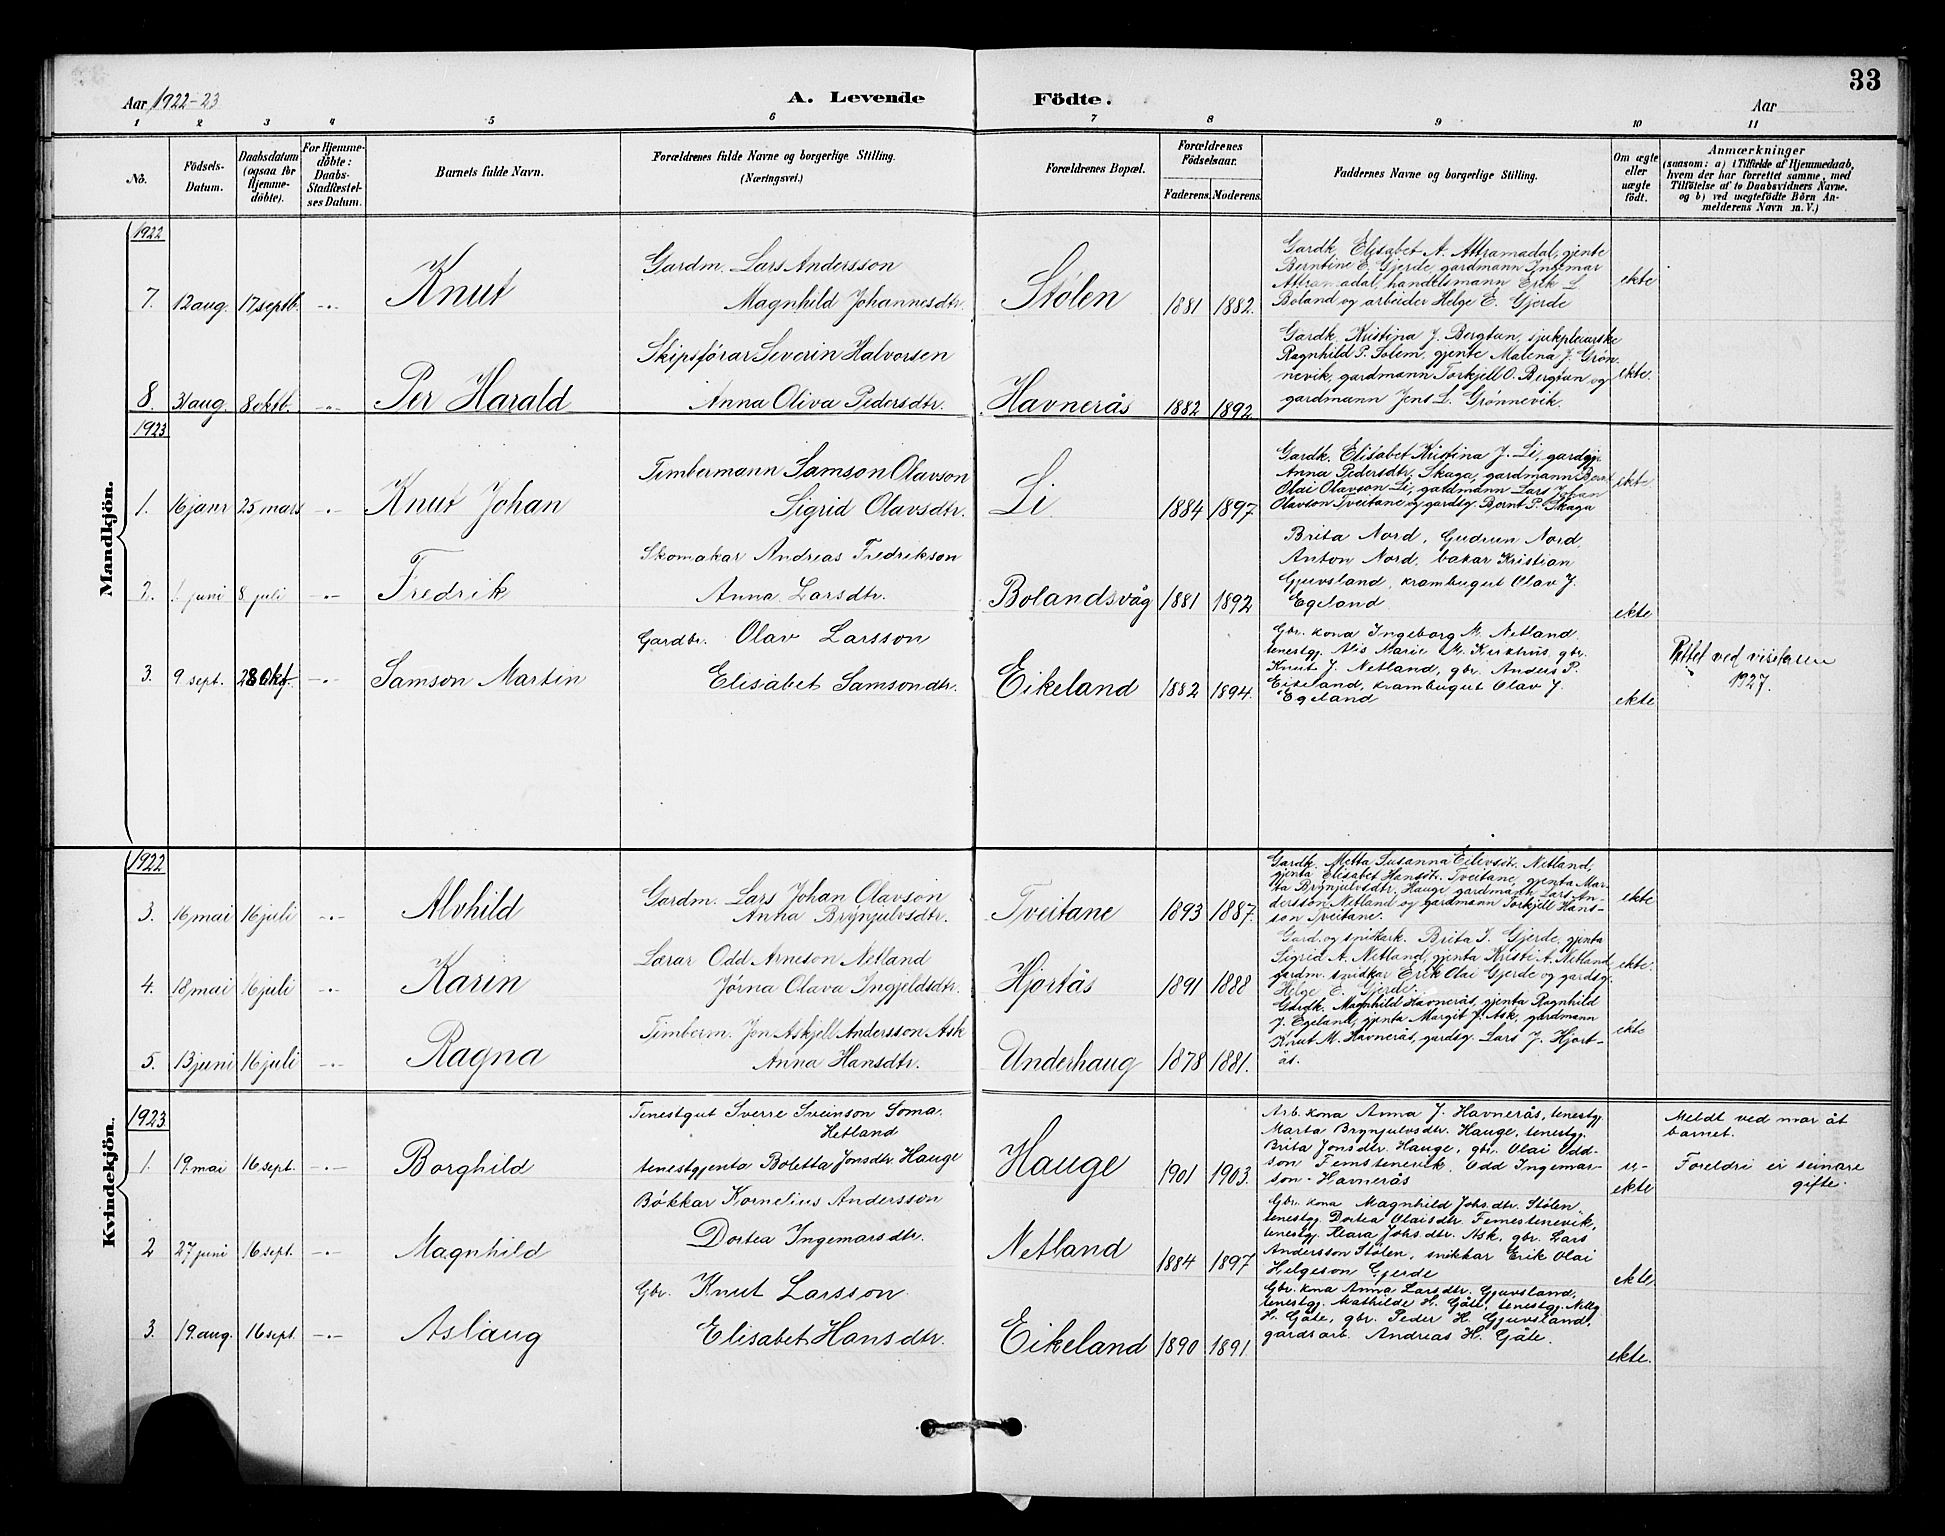 33
Aar 1922-23
A. Levende Födte.
Aar
1 2 3 4 5 6 7 8 9 10 11
No.
Födsels-Datum.
Daabsdatum (ogsaa for Hjemme-döbte).
For Hjemme-döbte: Daabs-Stadfæstel-ses Datum.
Barnets fulde Navn.
Forældrenes fulde Navne og borgerlige Stilling.
(Næringsvei.)
Forældrenes Bopæl.
Forældrenes Födselsaar.
Faderens. Moderens.
Faddernes Navne og borgerlige Stilling.
Om ægte eller uægte födt.
Anmærkninger
(saasom: a) i Tilfælde af Hjemmedaab,
hvem der har forrettet samme, med
Tilföielse af to Daabsvidners Navne.
og b) ved uægtefödte Börn An-
melderens Navn m. V.)
Mandkjön.
1922
7. 12 aug. 17 septb. -"- Knut
Gardm. Lars Andersson
Magnhild Johannesdtr.
Stölen 1881 1882.
Gardk. Elisabet A. Attramadal, gjente
Berntine E. Gjerde, gardmann Ingemar
Attramadal, handelsmann Erik L
Boland og arbeider Helge E. Gjerde
ekte
8. 31 aug. 8 oktb. -"- Per Harald
Skipsförar Severin Halvorsen
Anna Oliva Pedersdtr.
Havnerås 1882 1892
Gardk. Kristina J. Bergtun, sjukpleiarske
Ragnhild P. Solem, gjente Malena J. Grön-
nevik, gardmann Torkjell O. Bergtun og
gardmann Jens L. Grönnevik.
ekte.
1923
1. 16 janr 25 mars -"- Knut Johan
Timbermann Samson Olavson
Sigrid Olavsdtr.
Li 1884 1897
Gardk. Elisabet Kristina J. Li, gardgj.
Anna Pedersdtr. Skaga, gardmann Bernt
Olai Olavson Li, gardmann Lars Johan
Olavson Tveitane og gardsg. Bernt P. Skaga
ekte
2. 1 juni 8 juli -"- Fredrik
Skomakar Andreas Fredrikson
Anna Larsdtr.
Bolandsvåg 1881 1892
Brita Nord, Gudrun Nord,
Anton Nord, bakar Kristian
Gjuvsland, krambugut Olav J.
Egeland
ekte
3. 9 sept. 28 Okt. -"- Samson Martin
Gardbr. Olav Larsson
Elisabet Samsondtr.
Eikeland 1882 1894.
Gbr. kona Ingeborg M. Netland
tenestgj. Alis Marie M. Kirkhus, gbr.
Knut J. Netland, gbr. Anders P.
Eikeland, krambugut Olav J.
Egeland
ekte
ved
1927.
Kvindekjön.
1922
3. 16 mai 16 juli -"- Alvhild
Gardm. Lars Johan Olavson
Anna Brynjulvsdtr.
Tveitane 1893 1887.
Gardk. Metta Susanna Eilevsdt. Netland,
gjenta Elisabet Hansdt. Tveitane, gjenta Mar-
ta Brynjulvsdtr. Hauge gardmann Lars An-
dersson Netland og gardmann Torkjell Hans-
son Tveitane.
ekte
4. 18 mai 16 juli -"- Karin
Lærar Odd Arneson Netland
Jörna Olava Ingjeldsdtr.
Hjortås 1891 1888
Gard. og snidkark. Brita I. Gjerde, gjenta
Sigrid A. Netland, gjenta Kristi A. Netland,
gardm. snidkar Erik Olai Gjerde og gardsg.
Helge E. Gjerde.
ekte.
5. 13 juni 16 juli -"- Ragna
Timberm. Jon Askjell Andersson Ask
Anna Hansdtr.
Underhaug 1878 1881.
Gardk. Magnhild Havnerås, gjenta Ragnhild
J. Egeland, gjenta Margit J. Ask, gardmann
Knut M. Havnerås, gardsg. Lars J. Hjort-
ås.
ekte
1923
1. 19. mai 16 sept. -"- Borghild
Tenestgut Sverre Sveinson Soma.
Hetland
tenestgjenta Boletta Jonsdtr. Hauge
Hauge 1901 1903.
Arb. kona Anna J. Havnerås, tenestgj.
Marta Brynjulvsdtr. Hauge, tenestgj.
Brita Jonsdtr. Hauge, gbr. Olai Odd-
son Femstenevik, Odd Ingemar-
son Havnerås
u-
ekte
Meldt ved mor åt
barnet.
Foreldri er seinare
gifte.
2 27 juni 16 sept. -"- Magnhild
Bökkar Kornelius Andersson
Dortea Ingemarsdtr.
Netland 1884 1897
Gbr. kona Magnhild Johs.dtr. Stölen,
tenestgj. Dortea Olaisdtr. Femestenevik,
tenestgj. Klara Johs.dtr. Ask, gbr. Lars
Andersson Stölen, snikkar Erik Olai
Helgeson Gjerde
ekte.
3. 19. aug. 16 sept. -"- Aslaug
Gbr. Knut Larsson
Elisabet Hansdtr.
Eikeland 1890 1891.
Gbr. kona Anna Larsdtr. Gjuvsland,
tenestgj. Mathilde H. Gåte, tenestgj. Nelly
H. Gåte, gbr. Peder H. Gjuvsland,
gardsarb. Andreas H. Gåte.
ekte.